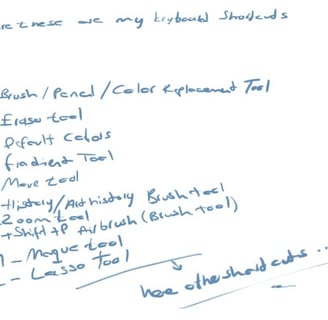 These are my keyboard Shortcuts
Brush/Pencil/Color Replacement Tool
Eraser tool
Default Colors
Gradient Tool
Move tool
History/Art history Brush tool
Zoom tool
+Shift+P Airbrush (Brush tool)
- Moque tool
- Lasso Tool
here other short cuts ...